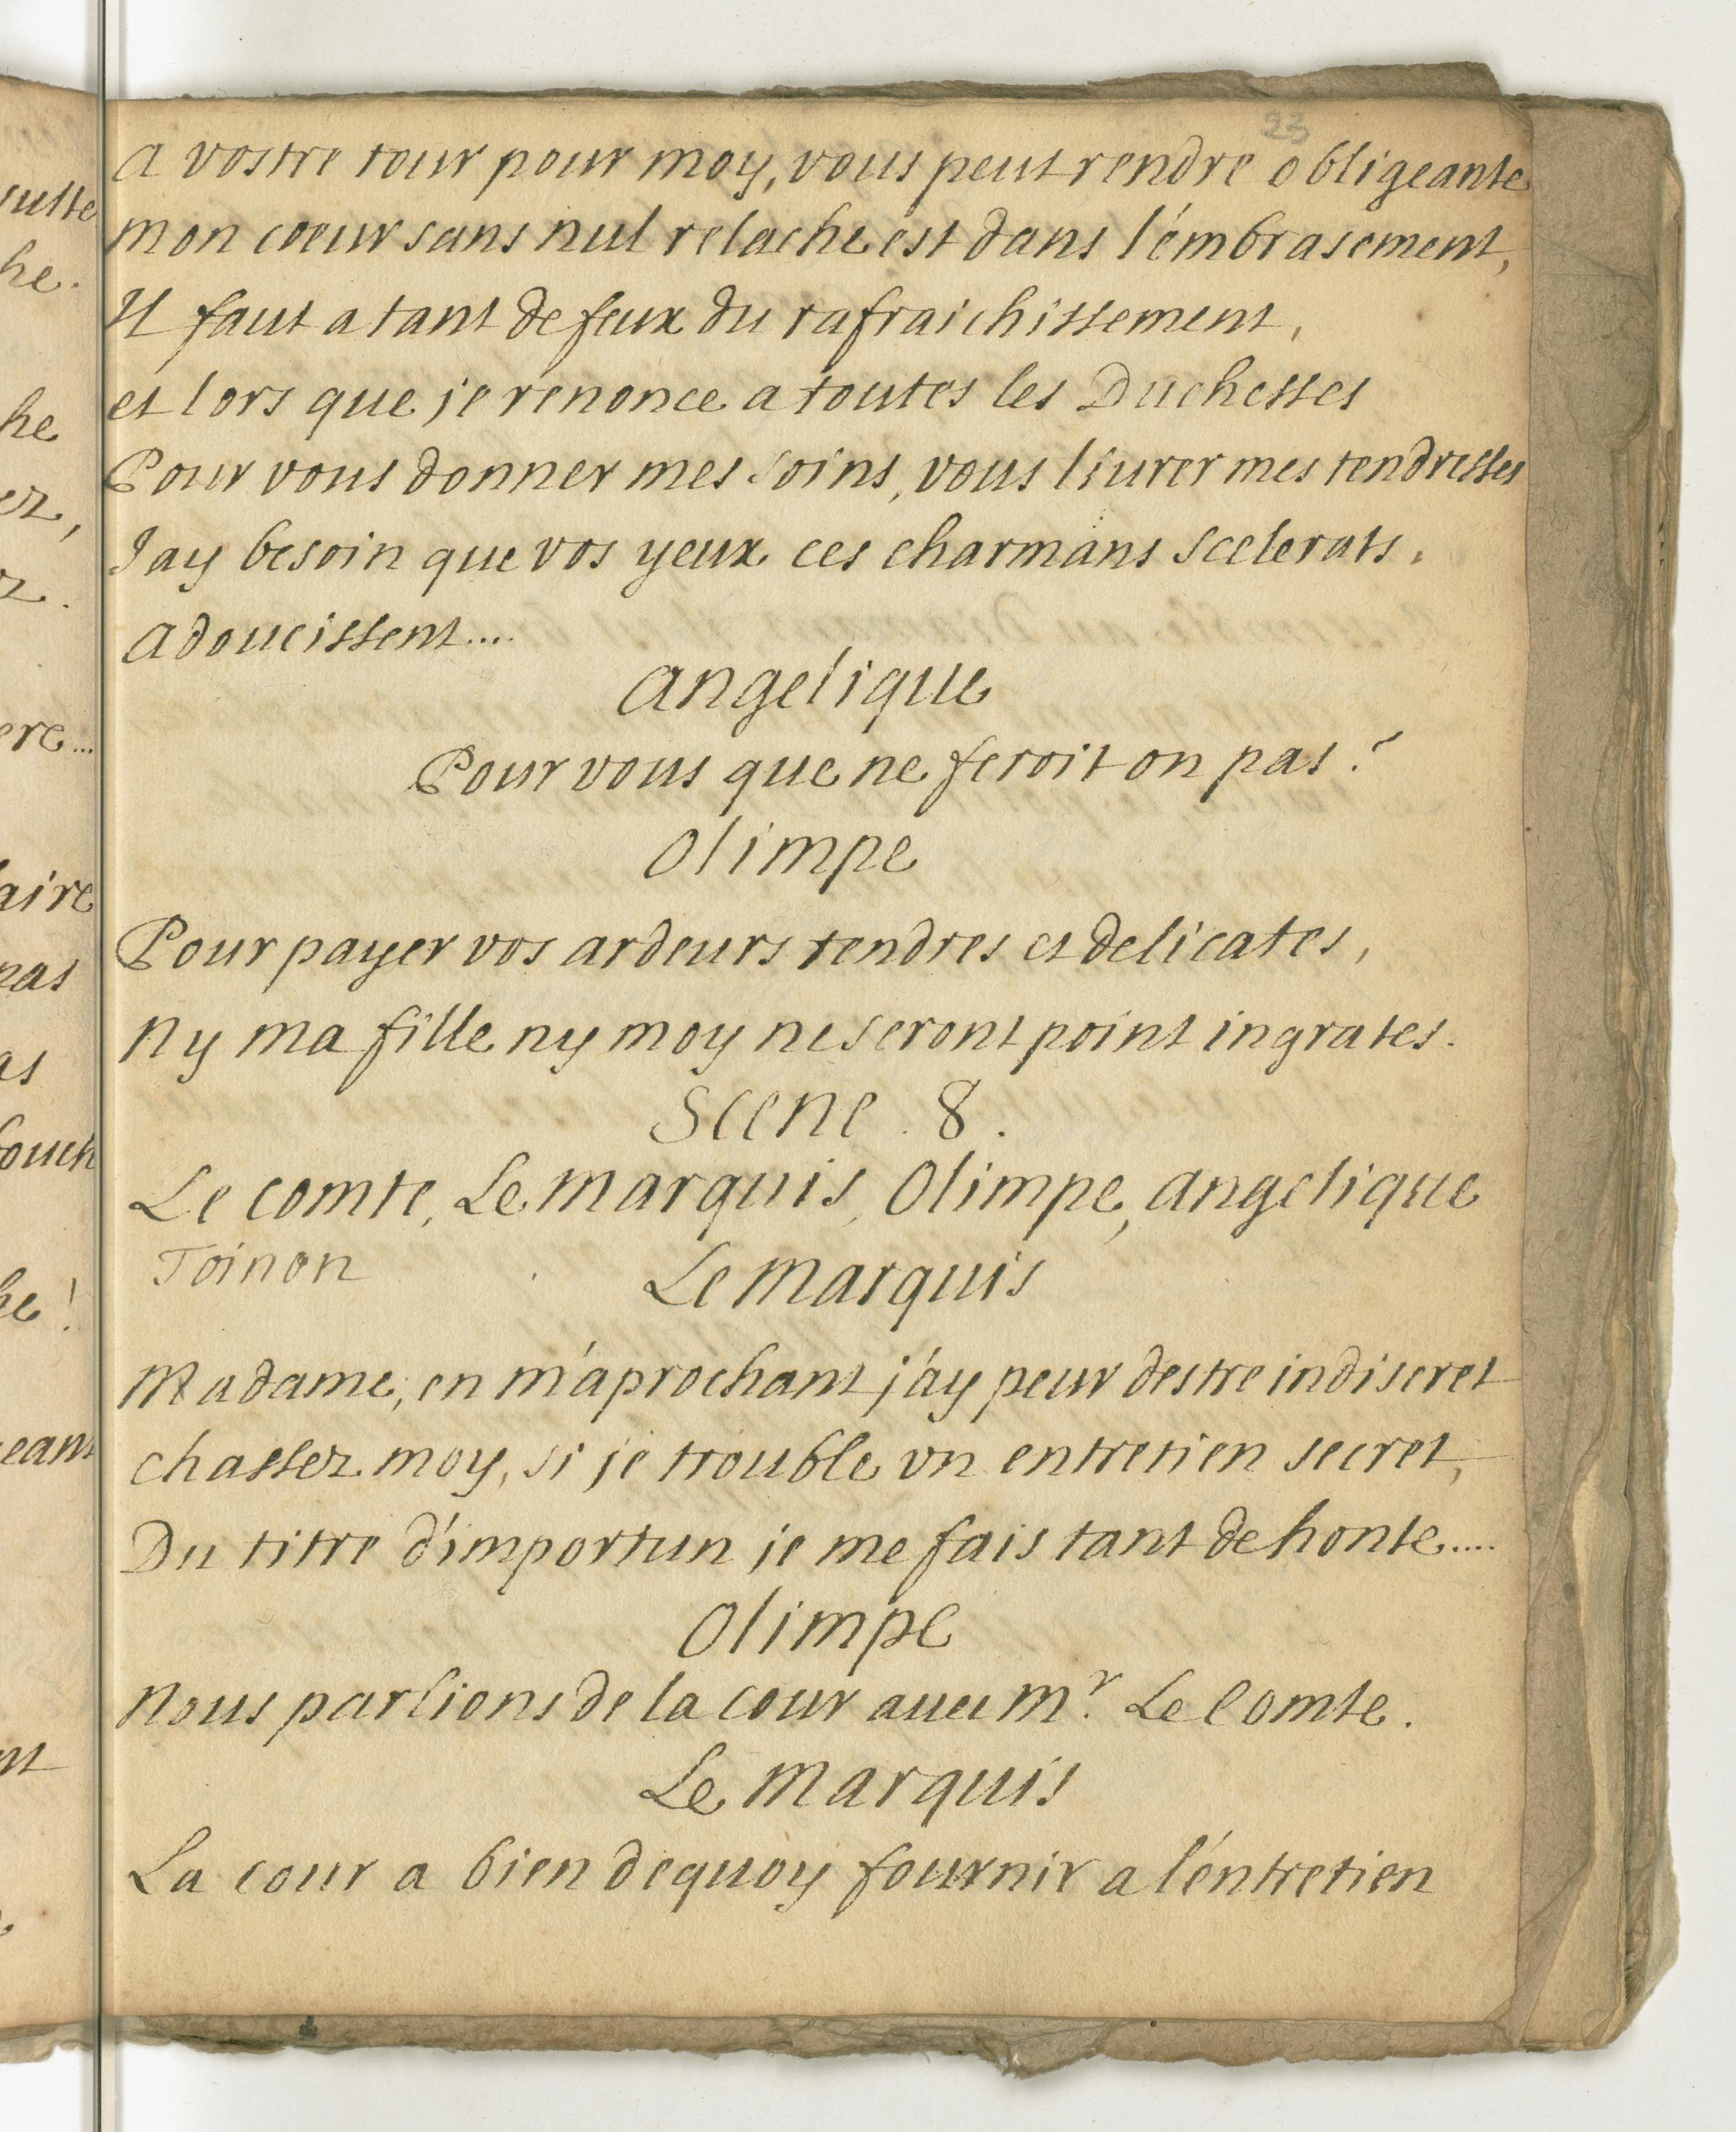 23
A vostre tour pour moy, vous peut rendre obligeante
mon coeur sans nul relache est dans l'embrasement,
Il faut a tant de feux du rafraichissement,
et lors que je renonce a toutes les Duchesses
Pour vous donner mes soins, vous liurer mes tendresses
Jay besoin que vos yeux ces charmans scelerats,
adoucissent....
angelique
Pour vous que ne feroit on pas?
Olimpe
Pour payer vos ardeurs tendres et delicates,
Ny ma fille ny moy ne seront point ingrates.
Scene . 8 .
Le comte, Le marquis, Olimpe, angelique
Toinon
Le marquis
Madame, en m'aprochant j'ay peur destre indiscret
chassez moy, si je trouble vn entretien secret,
Du titre d'importun je me fais tant de honte.....
Olimpe
Nous parlions de la cour auec Mr. Le Comte.
Le marquis
La cour a bien dequoy fournir a l'entretien
sulte
he.
he
ez,
z.
ere...
aire
pas
as
bouch
he!
geant
nt